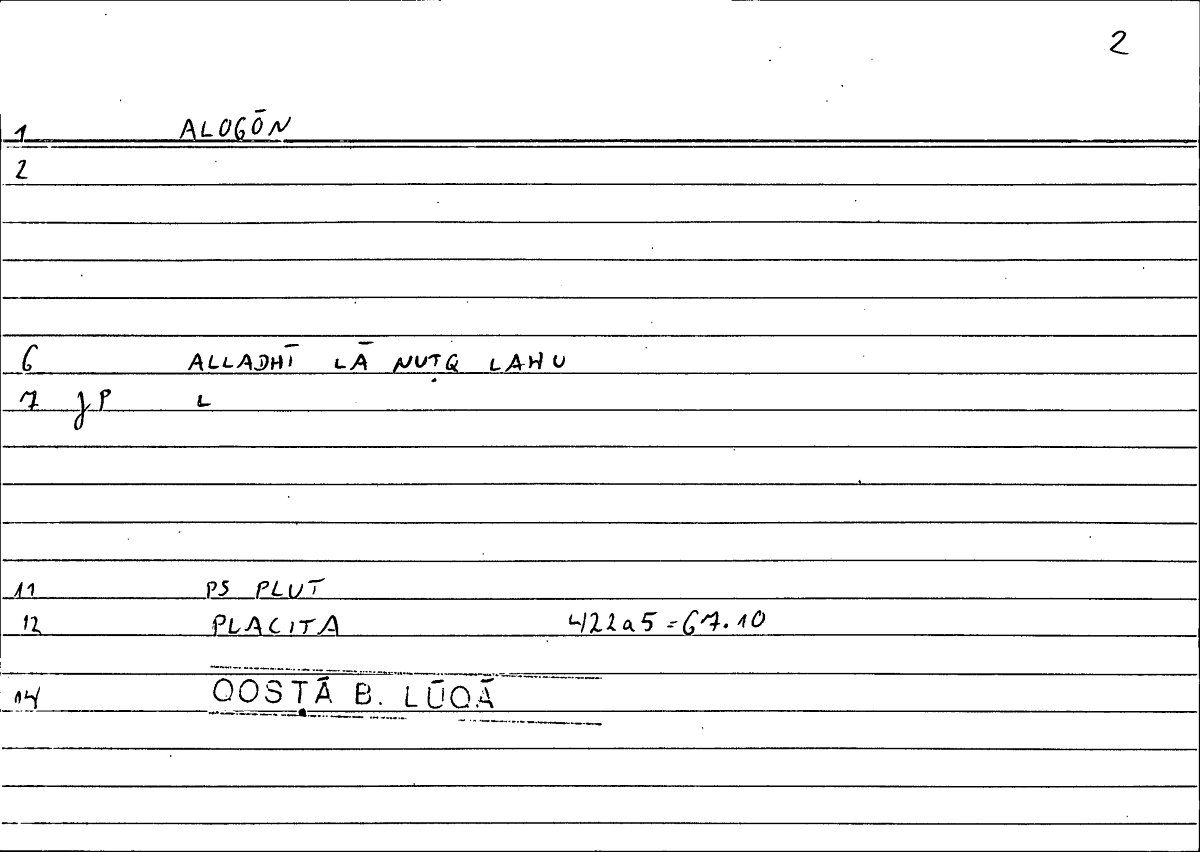 2
1 ALOGŌN
2
6 ALLADHĪ LĀ NUṬQ LAHU
7 jP L
11 PS PLUT
12 PLACITA 422a5=67.10
14 QOSṬĀ B. LŪQĀ